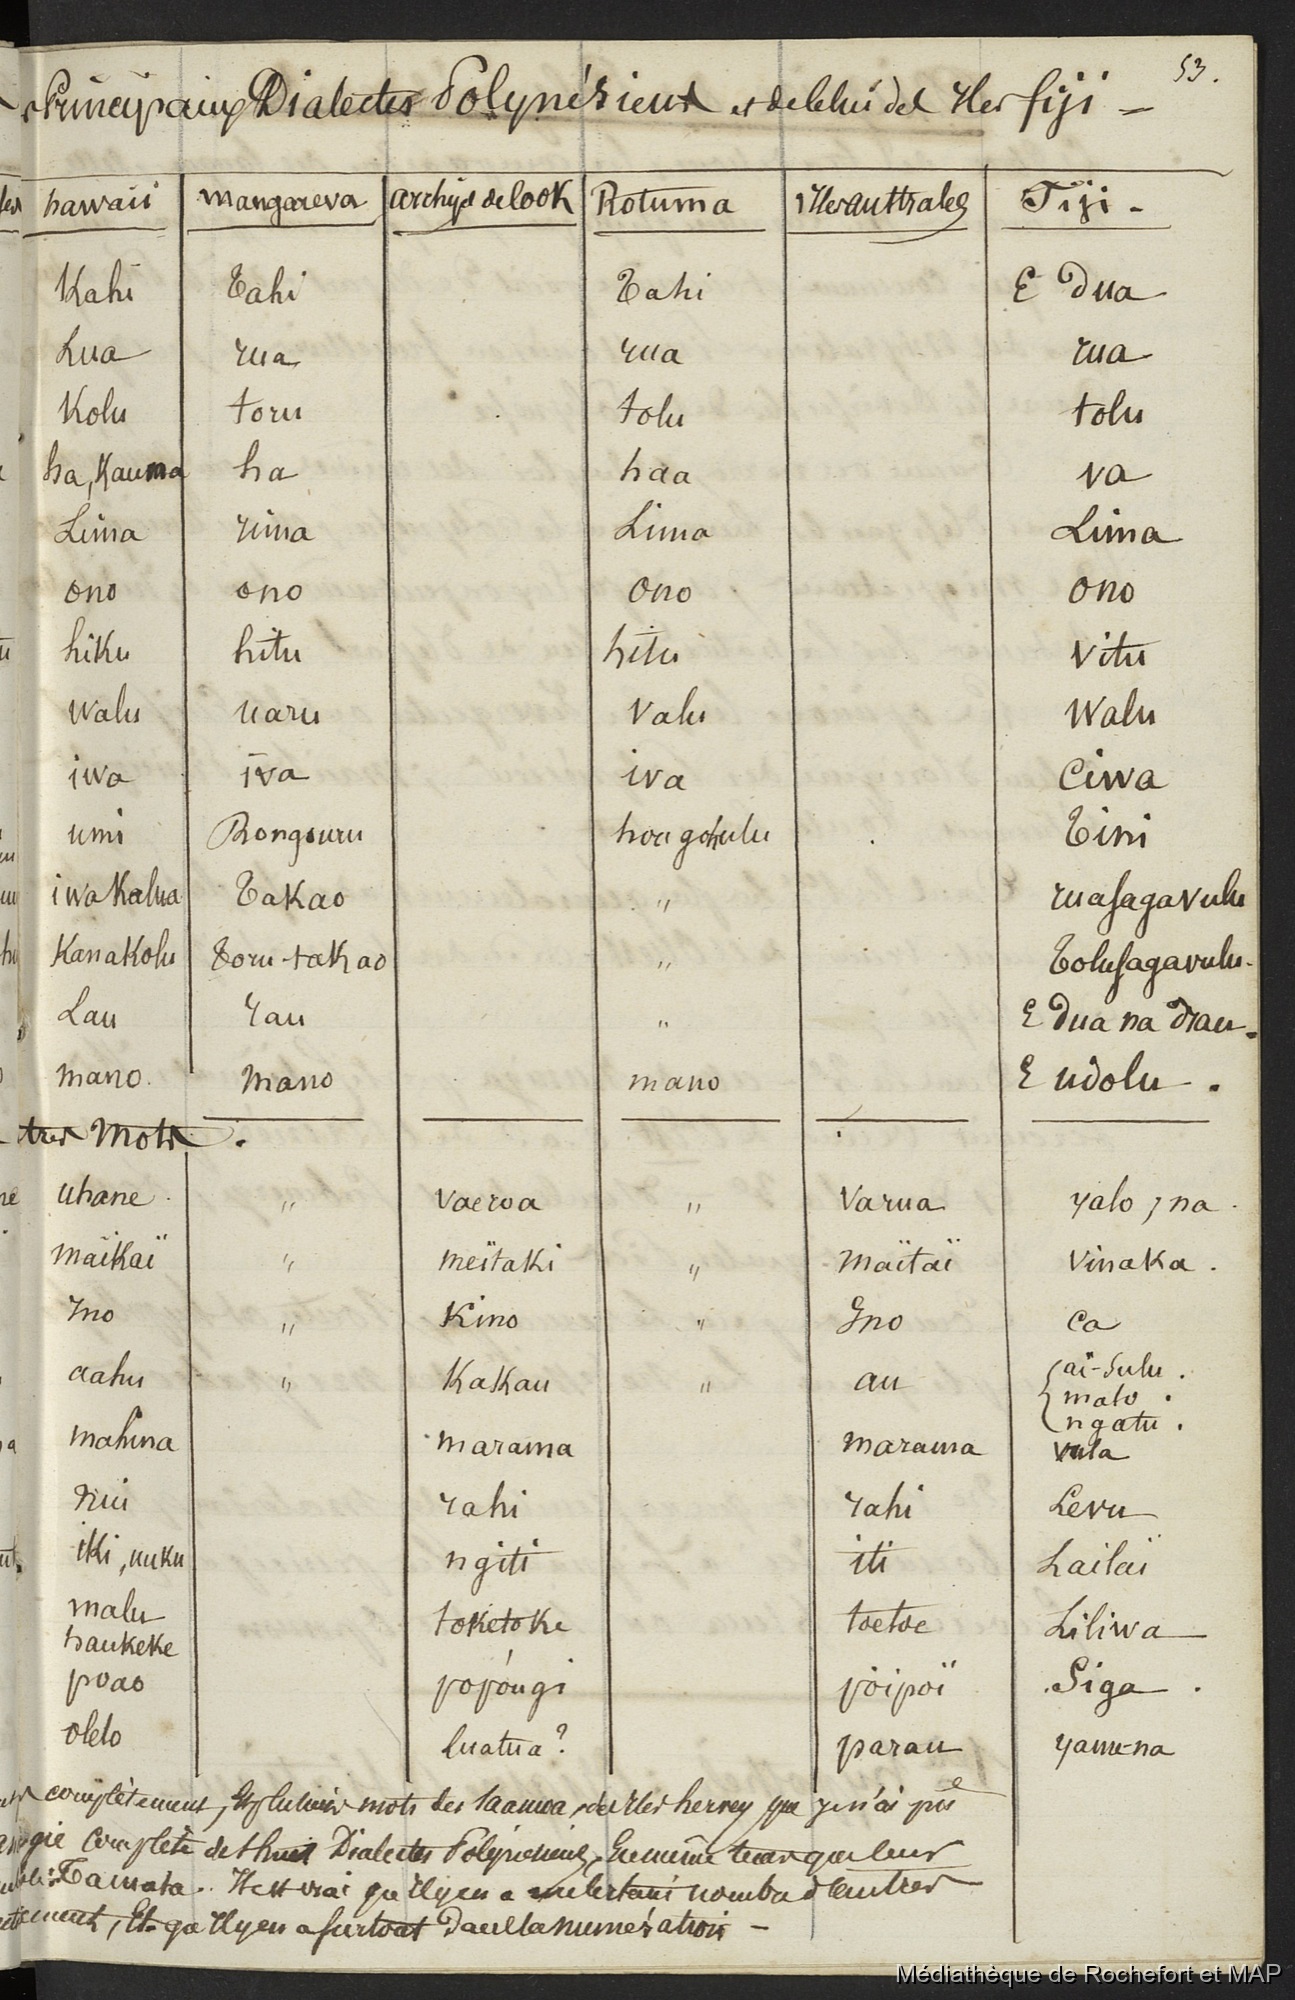 53.
Principaux Dialectes Polynésiens et de celui des Iles fiji –
hawaii mangareva archip de Cook Rotuma Iles australes Fiji -
Kahi Tahi Tahi E Dua
Lua rua rua rua
Kolu toru tolu tolu
ha, Kauna ha haa va
Lima rima Lima Lima
ono ono ono ono
hiku hitu hitu vitu
walu uaru valu walu
iwa iva iva Ciwa
umi Rongouru Tini
iwakalua Takao " ruasagavulu
Kanakolu Toru-takao " Tolusagavulu -
Lau rau " E Dua na drau -
mano. mano mano E udolu .
tres Mots .
uhane " vaeroa " varua yalo, na .
maïkaï " meïtaki " maïtaï vinaka .
Ino " Kino " Ino Ca
aahu " KaKau " au ai-Sulu .
malo .
ngatu .
mahina marama marama vula
nui rahi rahi Levu
iki, uuku ngiti iti Lailaï
malu toketoke toetoe Liliwa
haukeke
poao popóngi poipoï Siga .
olelo Luatua? parau yame-na
complètement, mots des Samoa, des Iles hervey que je n'ai pu
complète de Dialectes Polynésiens,
Tamata. Il est vrai qu'il y en a un certain nombre d'entr'eux
ement, Et qu'il y en a surtout Dans la numération –
Médiathèque de Rochefort et MAP